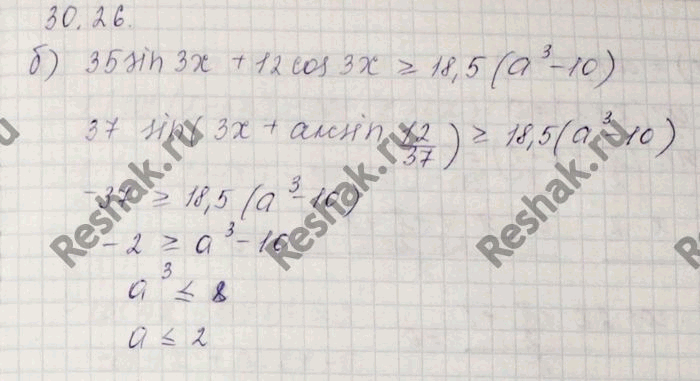 30.26.
б) 35 sin 3x + 12 cos 3x ≥ 18,5 (a³ - 10)
37 sin( 3x + arcsin 12/37 ) ≥ 18,5 (a³ - 10)
-37 ≥ 18,5 (a³ - 10)
-2 ≥ a³ - 10
a³ ≤ 8
a ≤ 2
Reshak.ru
Reshak.ru
Reshak.ru
Reshak.ru